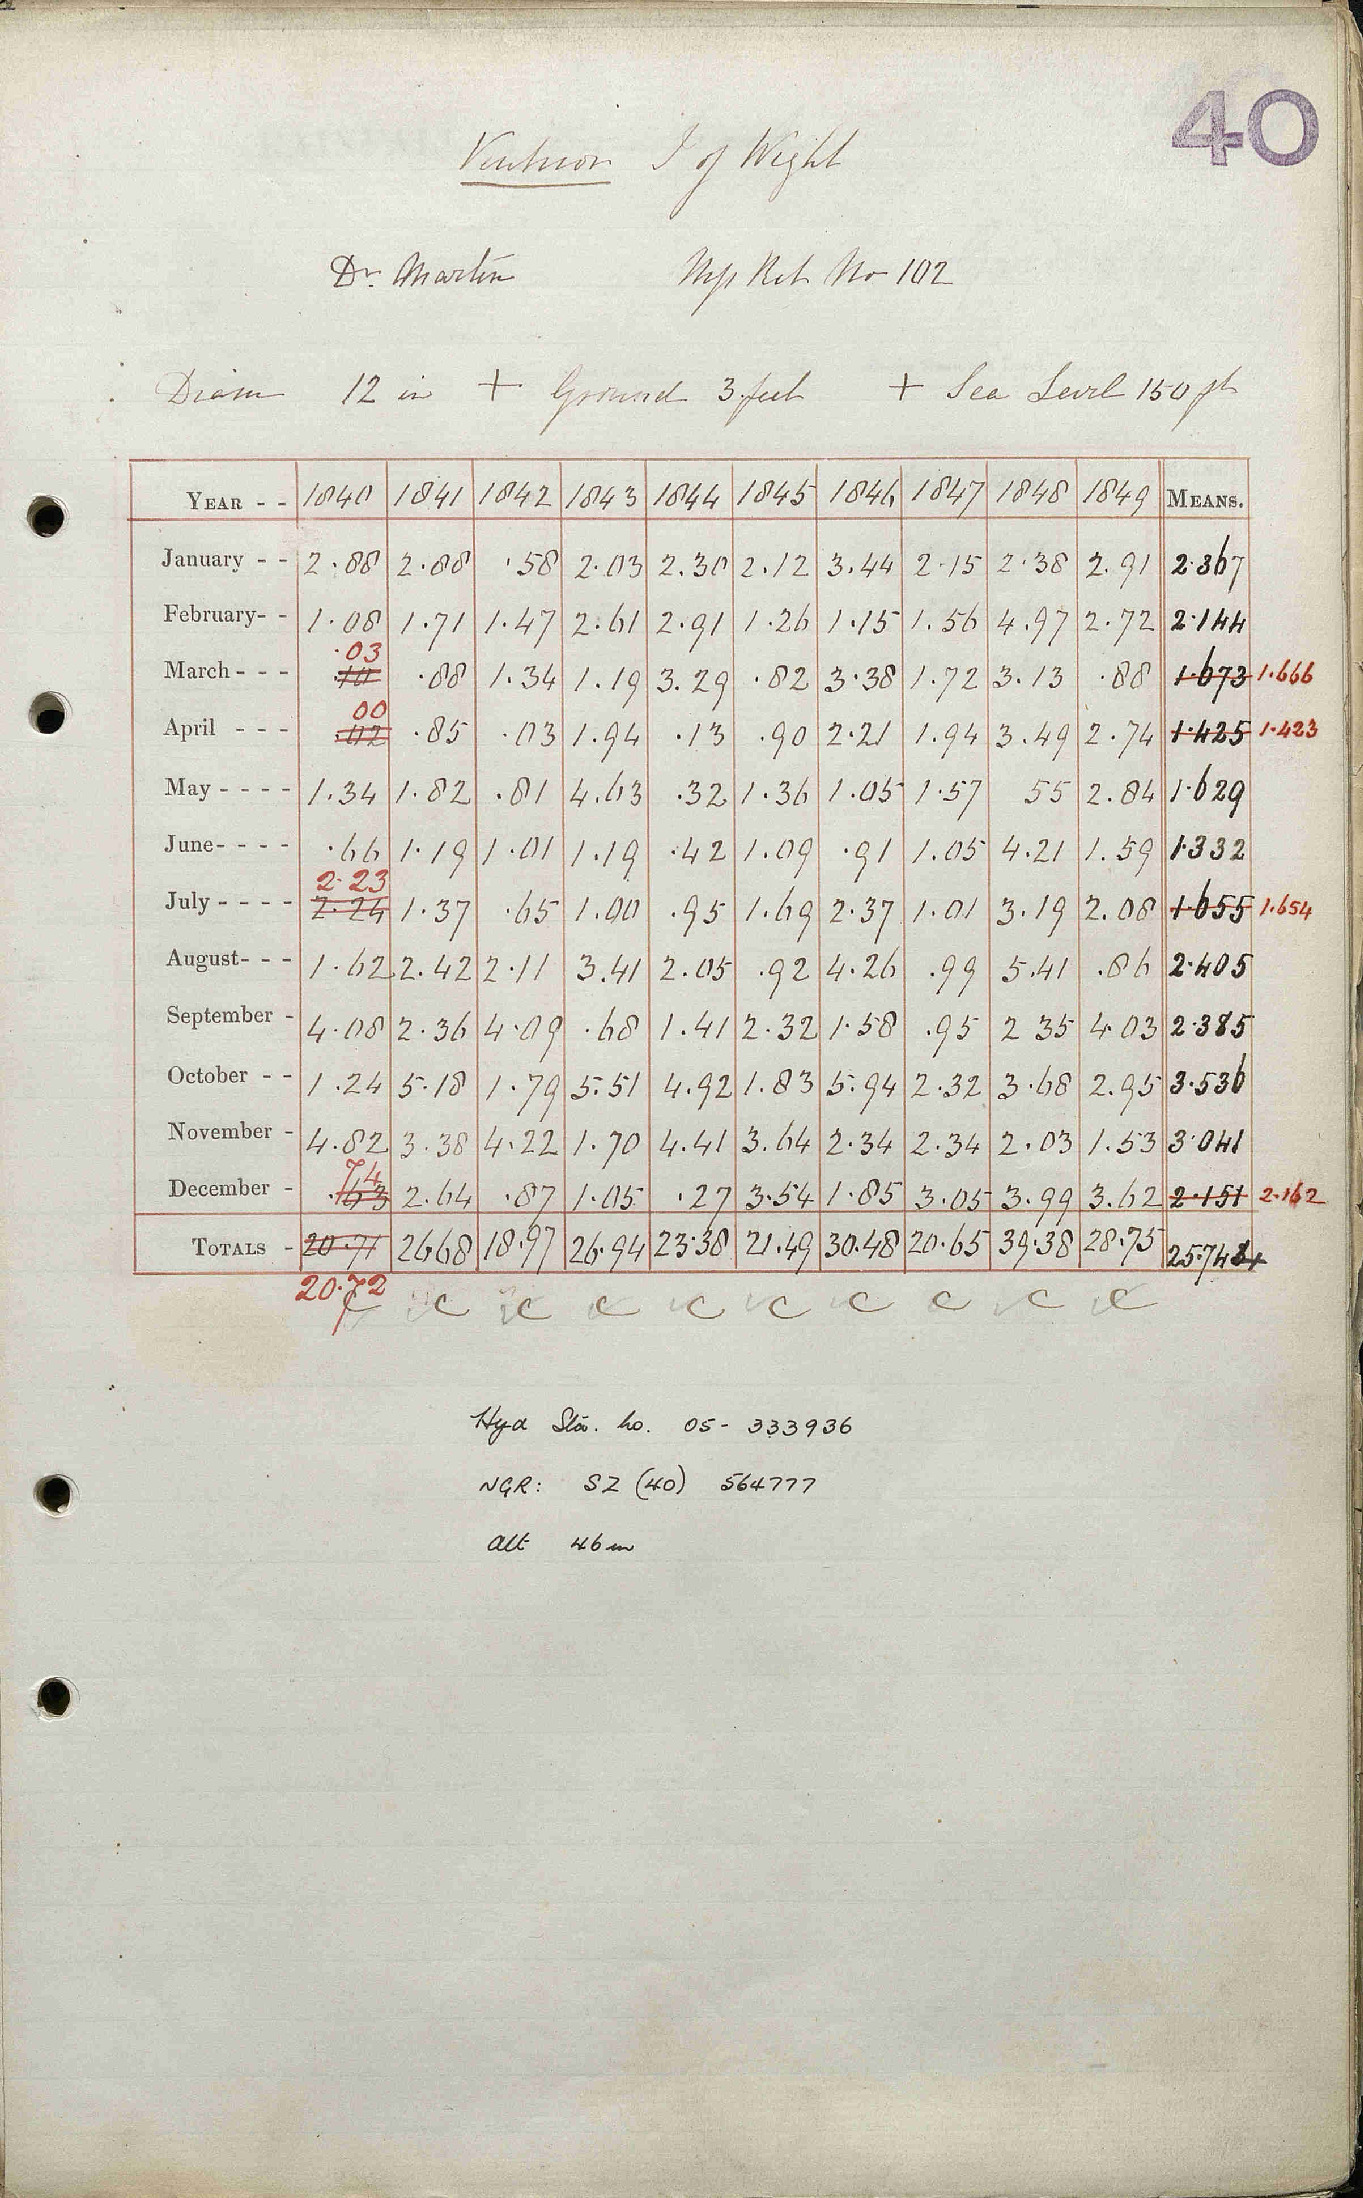 40
Ventnor I of Wight
Dr. Martin Mp Ret No 102
Diam 12 in + Ground 3 feet + Sea Level 150 ft
YEAR - - 1840 1841 1842 1843 1844 1845 1846 1847 1848 1849 MEANS.
January - - 2.88 2.88 .58 2.03 2.30 2.12 3.44 2.15 2.38 2.91 2.367
February- - 1.08 1.71 1.47 2.61 2.91 1.26 1.15 1.56 4.97 2.72 2.144
.03
March - - - .10 .88 1.34 1.19 3.29 .82 3.38 1.72 3.13 .88 1.673 1.666
00
April - - - .02 .85 .03 1.94 .13 .90 2.21 1.94 3.49 2.74 1.425 1.423
May - - - - 1.34 1.82 .81 4.63 .32 1.36 1.05 1.57 55 2.84 1.629
June- - - - .66 1.19 1.01 1.19 .42 1.09 .91 1.05 4.21 1.59 1.332
2.23
July - - - - 2.24 1.37 .65 1.00 .95 1.69 2.37 1.01 3.19 2.08 1.655 1.654
August- - - 1.62 2.42 2.11 3.41 2.05 .92 4.26 .99 5.41 .86 2.405
September - 4.08 2.36 4.09 .68 1.41 2.32 1.58 .95 2 35 4.03 2.385
October - - 1.24 5.18 1.79 5.51 4.92 1.83 5.94 2.32 3.68 2.95 3.536
November - 4.82 3.38 4.22 1.70 4.41 3.64 2.34 2.34 2.03 1.53 3.041
74
December - .63 2.64 .87 1.05 .27 3.54 1.85 3.05 3.99 3.62 2.151 2.162
TOTALS - 20.71 26.68 18.97 26.94 23.38 21.49 30.48 20.65 39.38 28.75 25.744
20.72
C C C C C C C C C C
Hyd Sta. No. 05- 333936
NGR: SZ (40) 564777
Alt 46 m